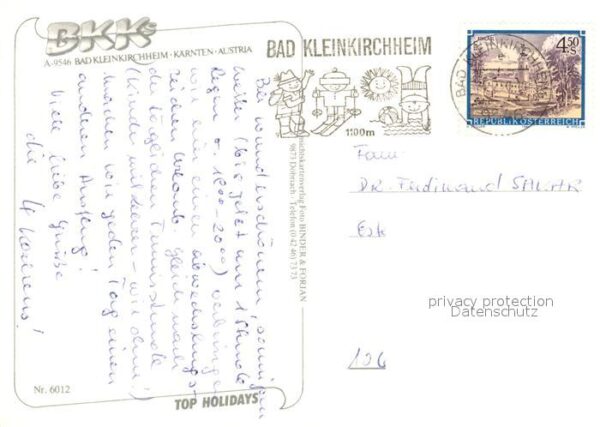 BKK
A-9546 BAD KLEINKIRCHHEIM · KÄRNTEN · AUSTRIA
BAD KLEINKIRCHHEIM
1100m
BAD KLEINKIRCHHEIM
4.50
S
REPUBLIK ÖSTERREICH
Bei wunderschönem, sonnigem
Wetter (bis jetzt nur 1 Stunde
Regen v. 1900-2000) verbringen
wir hier einen abwechslungs-
reichen Urlaub. Gleich nach
der täglichen Tennisstunde
(Kinder mit Lehrer - wir ohne!)
machen wir jeden Tag einen
anderen Ausflug!
Viele liebe Grüße
die
4
Ansichtskartenverlag Foto BINDER & FORJAN
9873 Döbriach · Telefon (0 42 46) 73 73
Fam.
DR. Ferdinand
privacy protection
Datenschutz
Nr. 6012
TOP HOLIDAYS